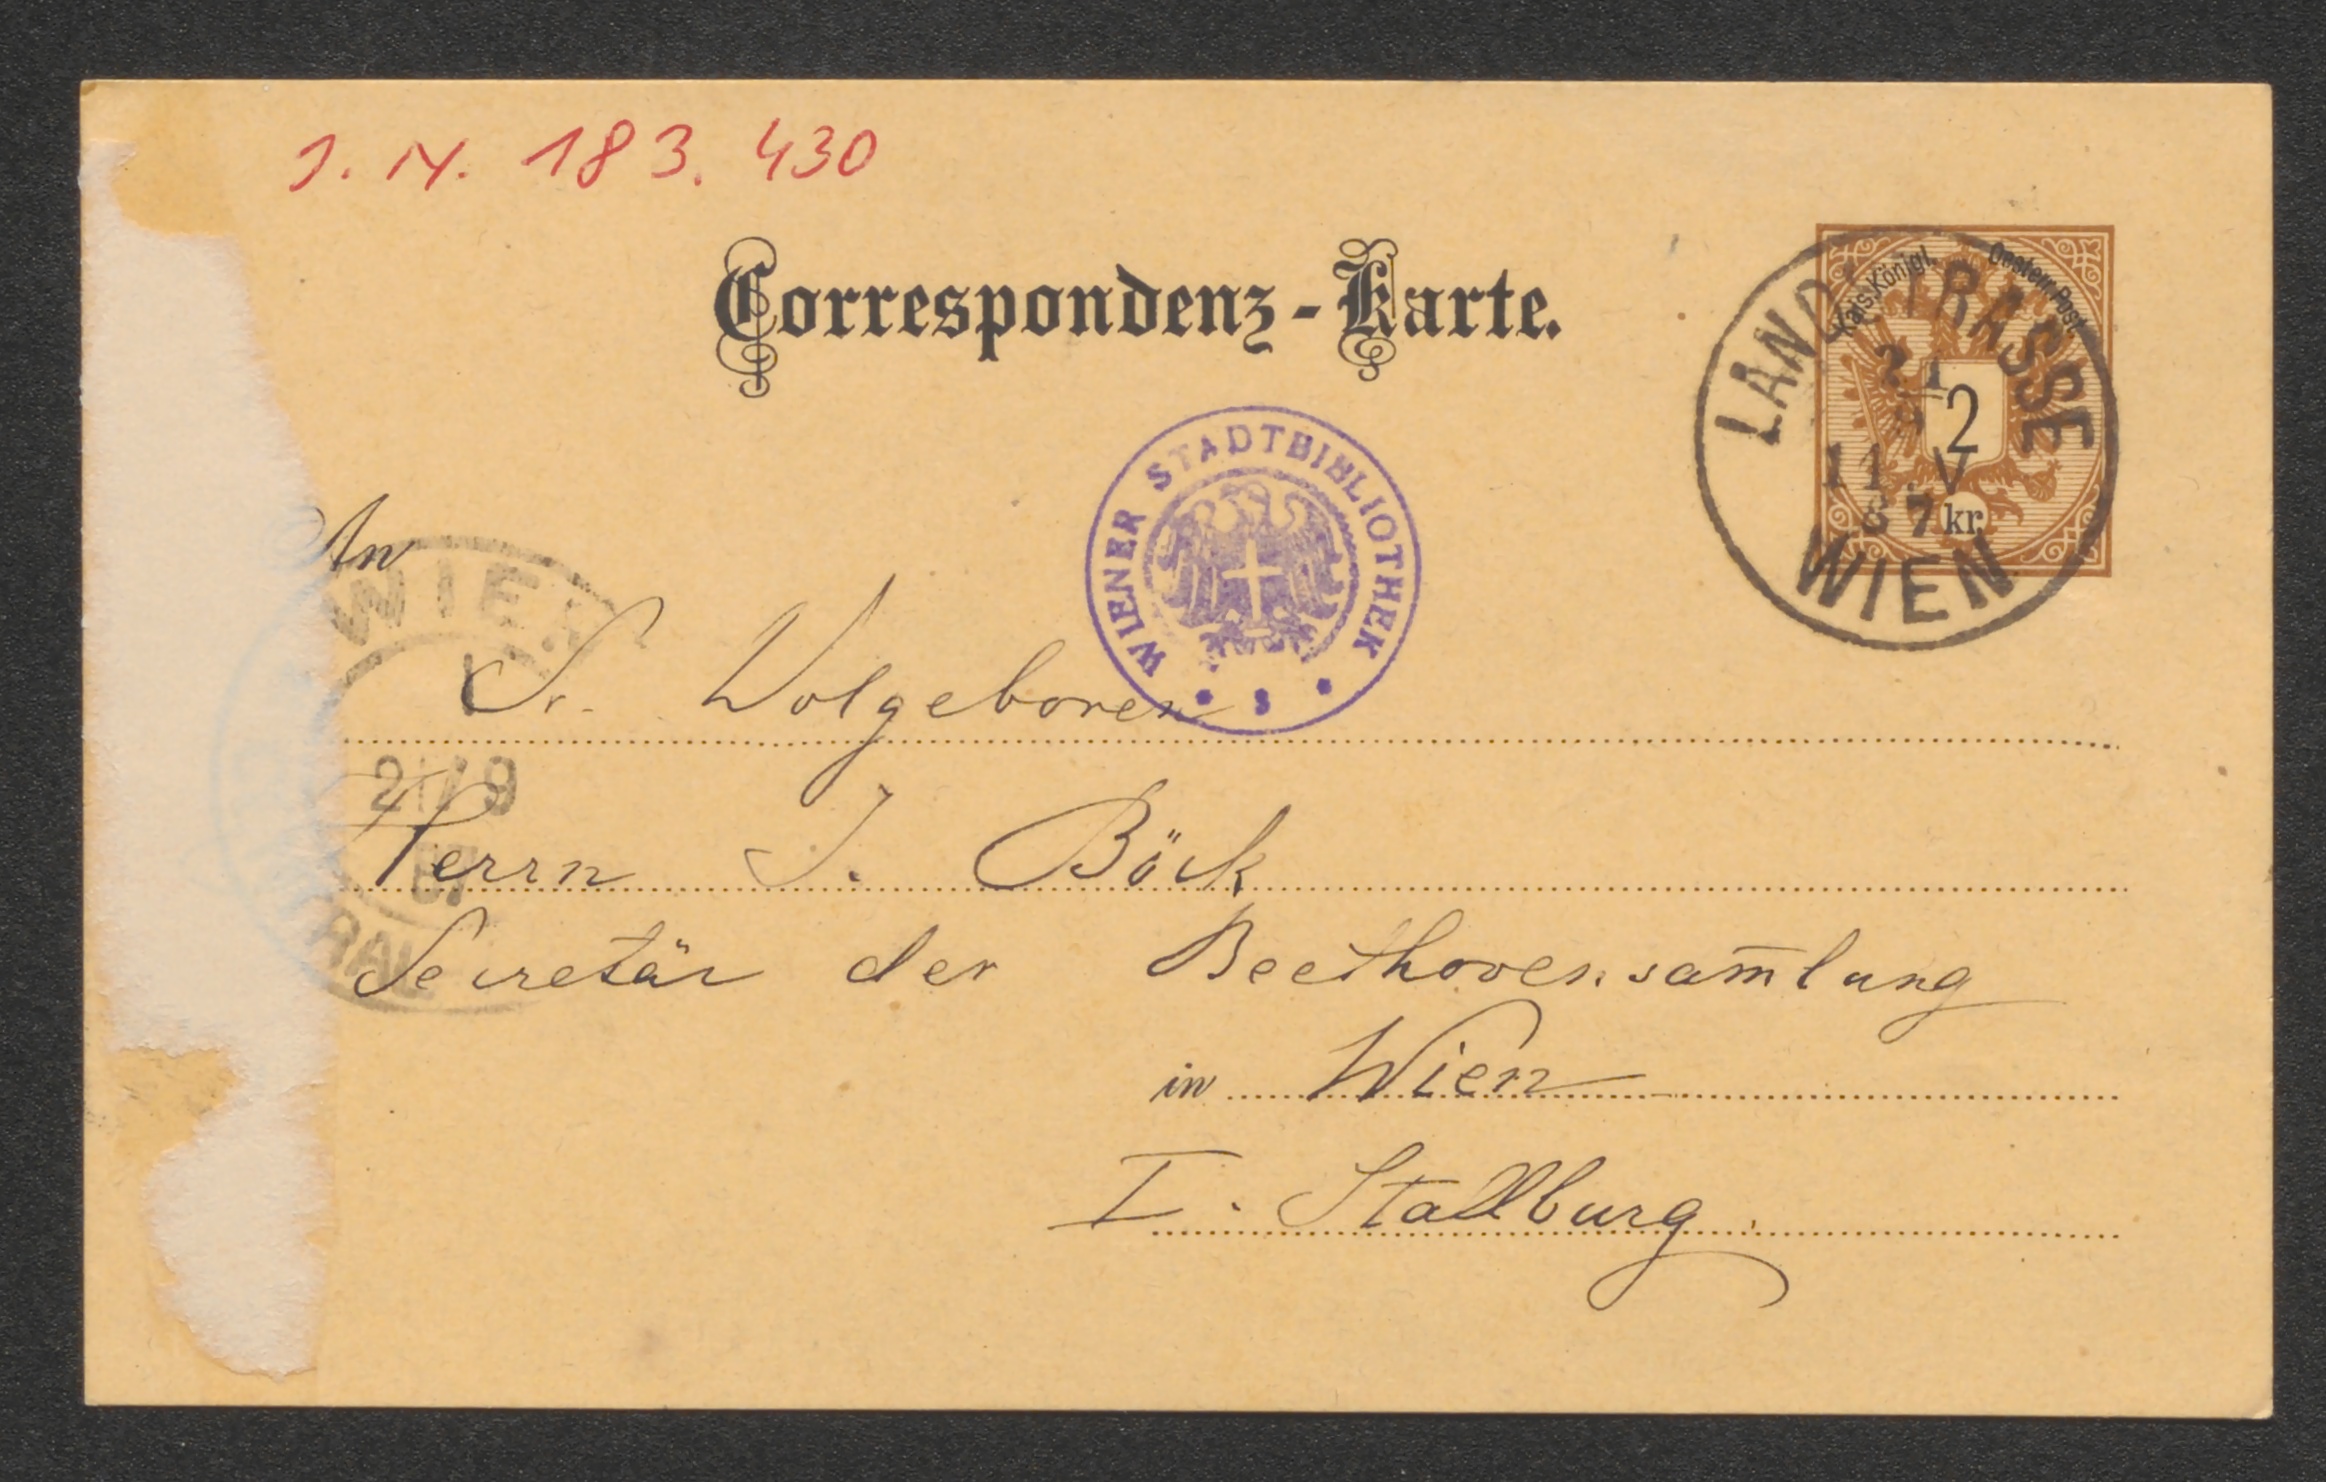 J. N. 183. 430
Correspondenz-Karte.
Kais. Königl. Oesterr. Post
2 kr.
LANDSTRASSE
21
9
11.V
87
WIEN
WIENER STADTBIBLIOTHEK
An
WIEN
Sr. Wolgeboren
21/9
87
Herrn J. Böck
Secretär der Beethovensam̄lung
in Wien
I. Stallburg